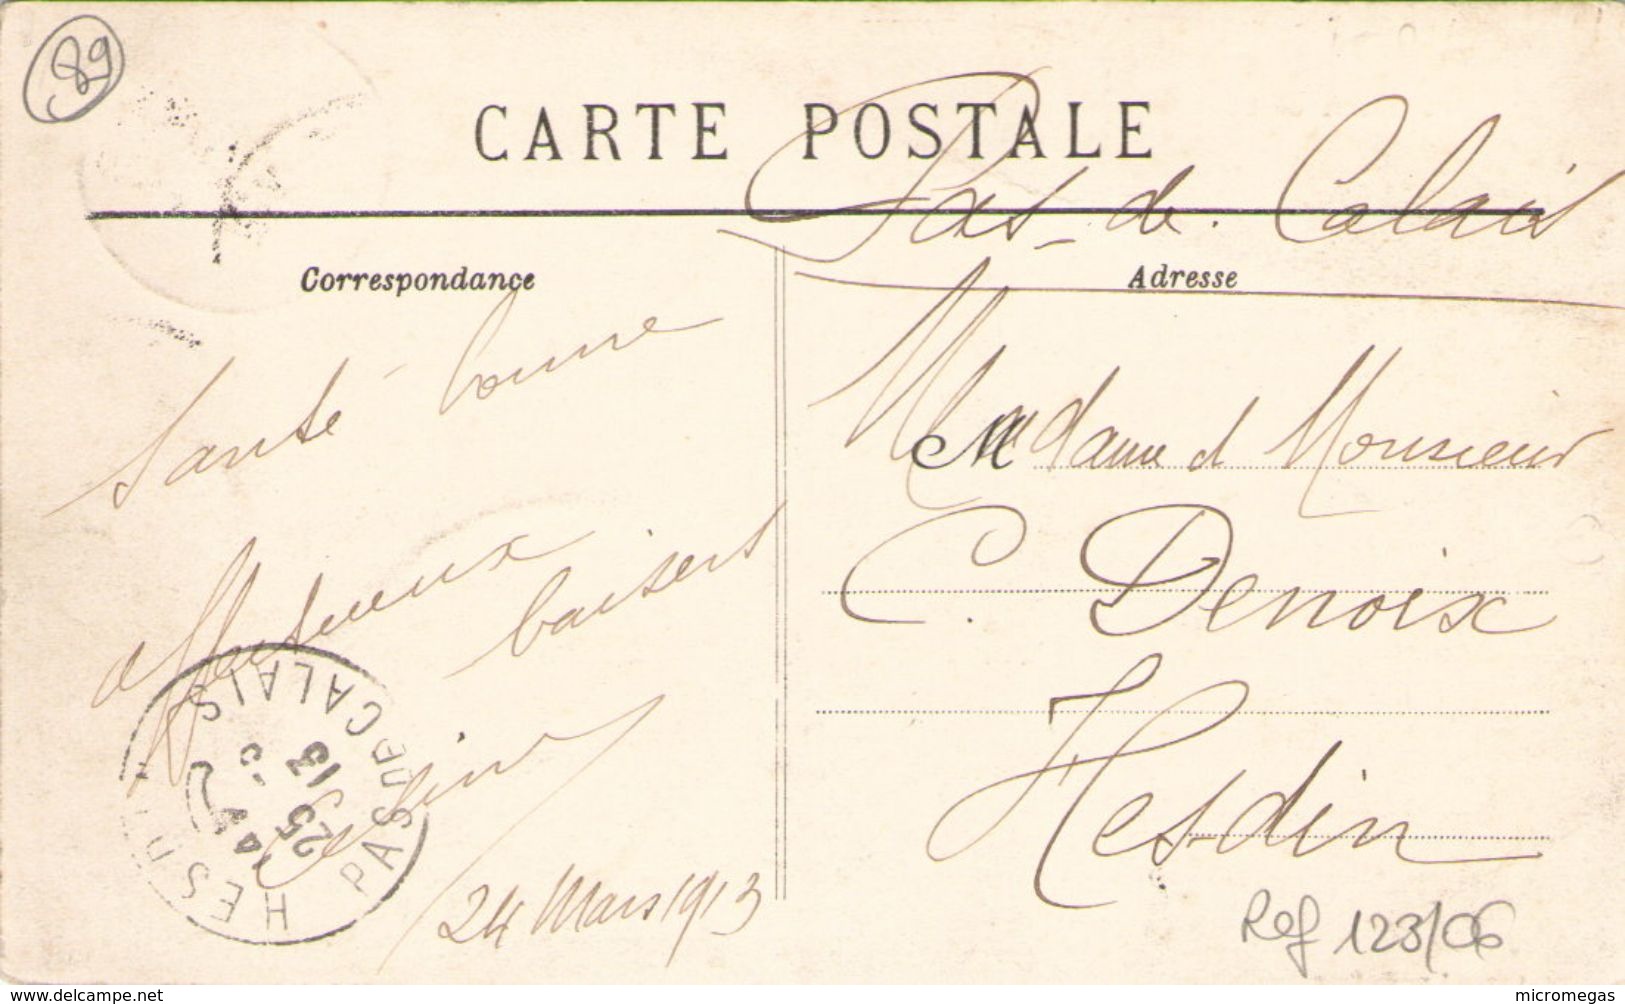 89
CARTE POSTALE
Pas-de-Calais
Correspondance
Adresse
Santé bonne
affectueux
baisers
24 Mars 1913
Madame et Monsieur
C. Denoix
Hesdin
HESDIN
PAS DE CALAIS
25
13
Ref 123/06
www.delcampe.net
micromegas